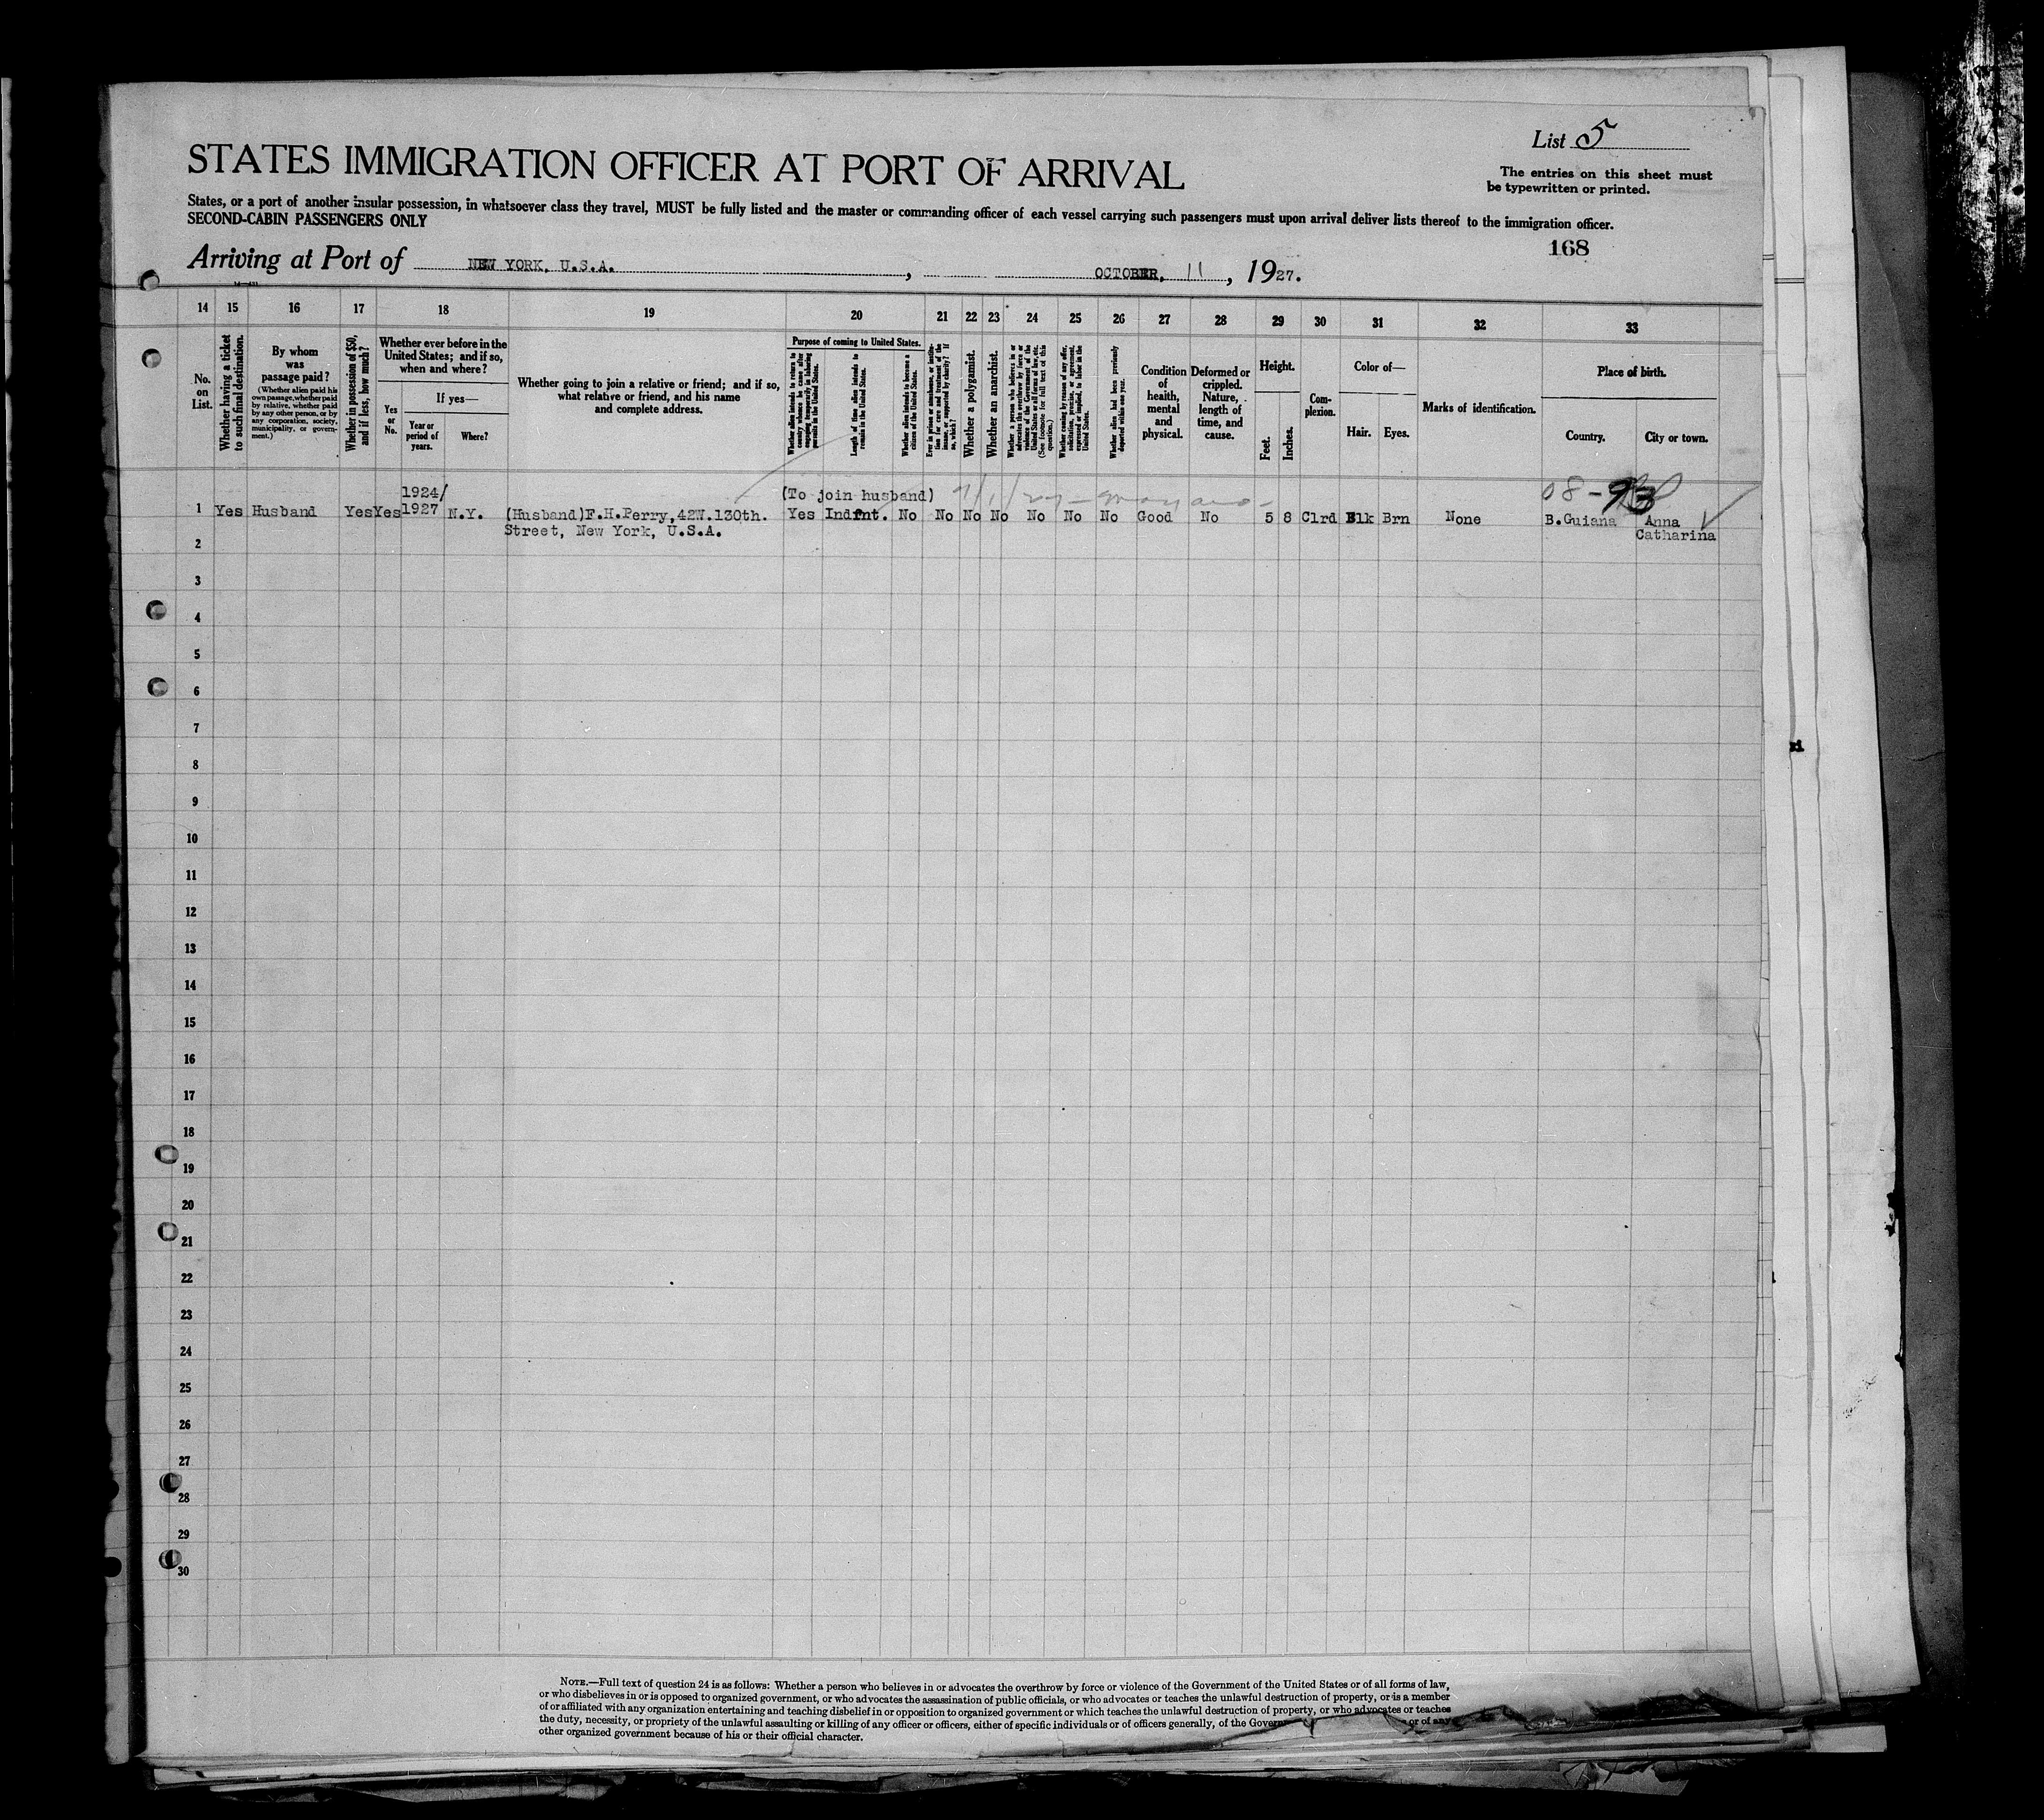 List 5
STATES IMMIGRATION OFFICER AT PORT OF ARRIVAL
The entries on this sheet must
be typewritten or printed.
States, or a port of another insular possession, in whatsoever class they travel, MUST be fully listed and the master or commanding officer of each vessel carrying such passengers must upon arrival deliver lists thereof to the immigration officer.
SECOND-CABIN PASSENGERS ONLY
168
Arriving at Port of NEW YORK, U.S.A. , OCTOBER, 11 , 1927.
14 15 16 17 18 19 20 21 22 23 24 25 26 27 28 29 30 31 32 33
No.
on
List.
Whether having a ticket
to such final destination.
By whom
was
passage paid?
(Whether alien paid his
own passage, whether paid
by relative, whether paid
by any other person, or by
any corporation, society,
municipality, or govern-
ment.)
Whether in possession of $50,
and if less, how much?
Whether ever before in the
United States; and if so,
when and where?
Yes
or
No.
If yes—
Year or
period of
years.
Where?
Whether going to join a relative or friend; and if so,
what relative or friend, and his name
and complete address.
Purpose of coming to United States.
Whether alien intends to return to
country whence he came after
engaging temporarily in laboring
pursuits in the United States.
Length of time alien intends to
remain in the United States.
Whether alien intends to become a
citizen of the United States.
Ever in prison or almshouse, or institu-
tion for care and treatment of the
insane, or supported by charity? If
so, which?
Whether a polygamist.
Whether an anarchist.
Whether a person who believes in or
advocates the overthrow by force or
violence of the Government of the
United States or all forms of law, etc.
(See footnote for full text of this
question.)
Whether coming by reason of any offer,
solicitation, promise, or agreement,
expressed or implied, to labor in the
United States.
Whether alien had been previously
deported within one year.
Condition
of
health,
mental
and
physical.
Deformed or
crippled.
Nature,
length of
time, and
cause.
Height.
Feet.
Inches.
Com-
plexion.
Color of—
Hair.
Eyes.
Marks of identification.
Place of birth.
Country.
City or town.
1924/
(To join husband)
08-93
1 Yes Husband Yes Yes 1927 N.Y. (Husband)F.H.Perry,42W.130th. Yes Indfnt. No No No No No No No Good No 5 8 Clrd Blk Brn None B.Guiana Anna
Street, New York, U.S.A. Catharina
2
3
4
5
6
7
8
9
10
11
12
13
14
15
16
17
18
19
20
21
22
23
24
25
26
27
28
29
30
NOTE.—Full text of question 24 is as follows: Whether a person who believes in or advocates the overthrow by force or violence of the Government of the United States or of all forms of law,
or who disbelieves in or is opposed to organized government, or who advocates the assassination of public officials, or who advocates or teaches the unlawful destruction of property, or is a member
of or affiliated with any organization entertaining and teaching disbelief in or opposition to organized government or which teaches the unlawful destruction of property, or who advocates or teaches
the duty, necessity, or propriety of the unlawful assaulting or killing of any officer or officers, either of specific individuals or of officers generally, of the or of any
other organized government because of his or their official character.